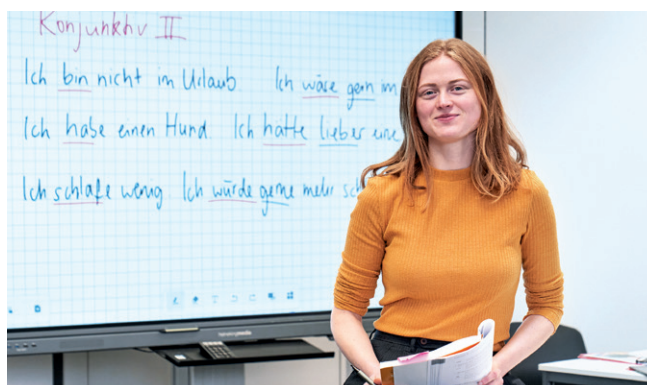 Konjunktiv II
Ich bin nicht im Urlaub Ich wäre gern im
Ich habe einen Hund. Ich hätte lieber eine
Ich schlafe wenig. Ich würde gerne mehr